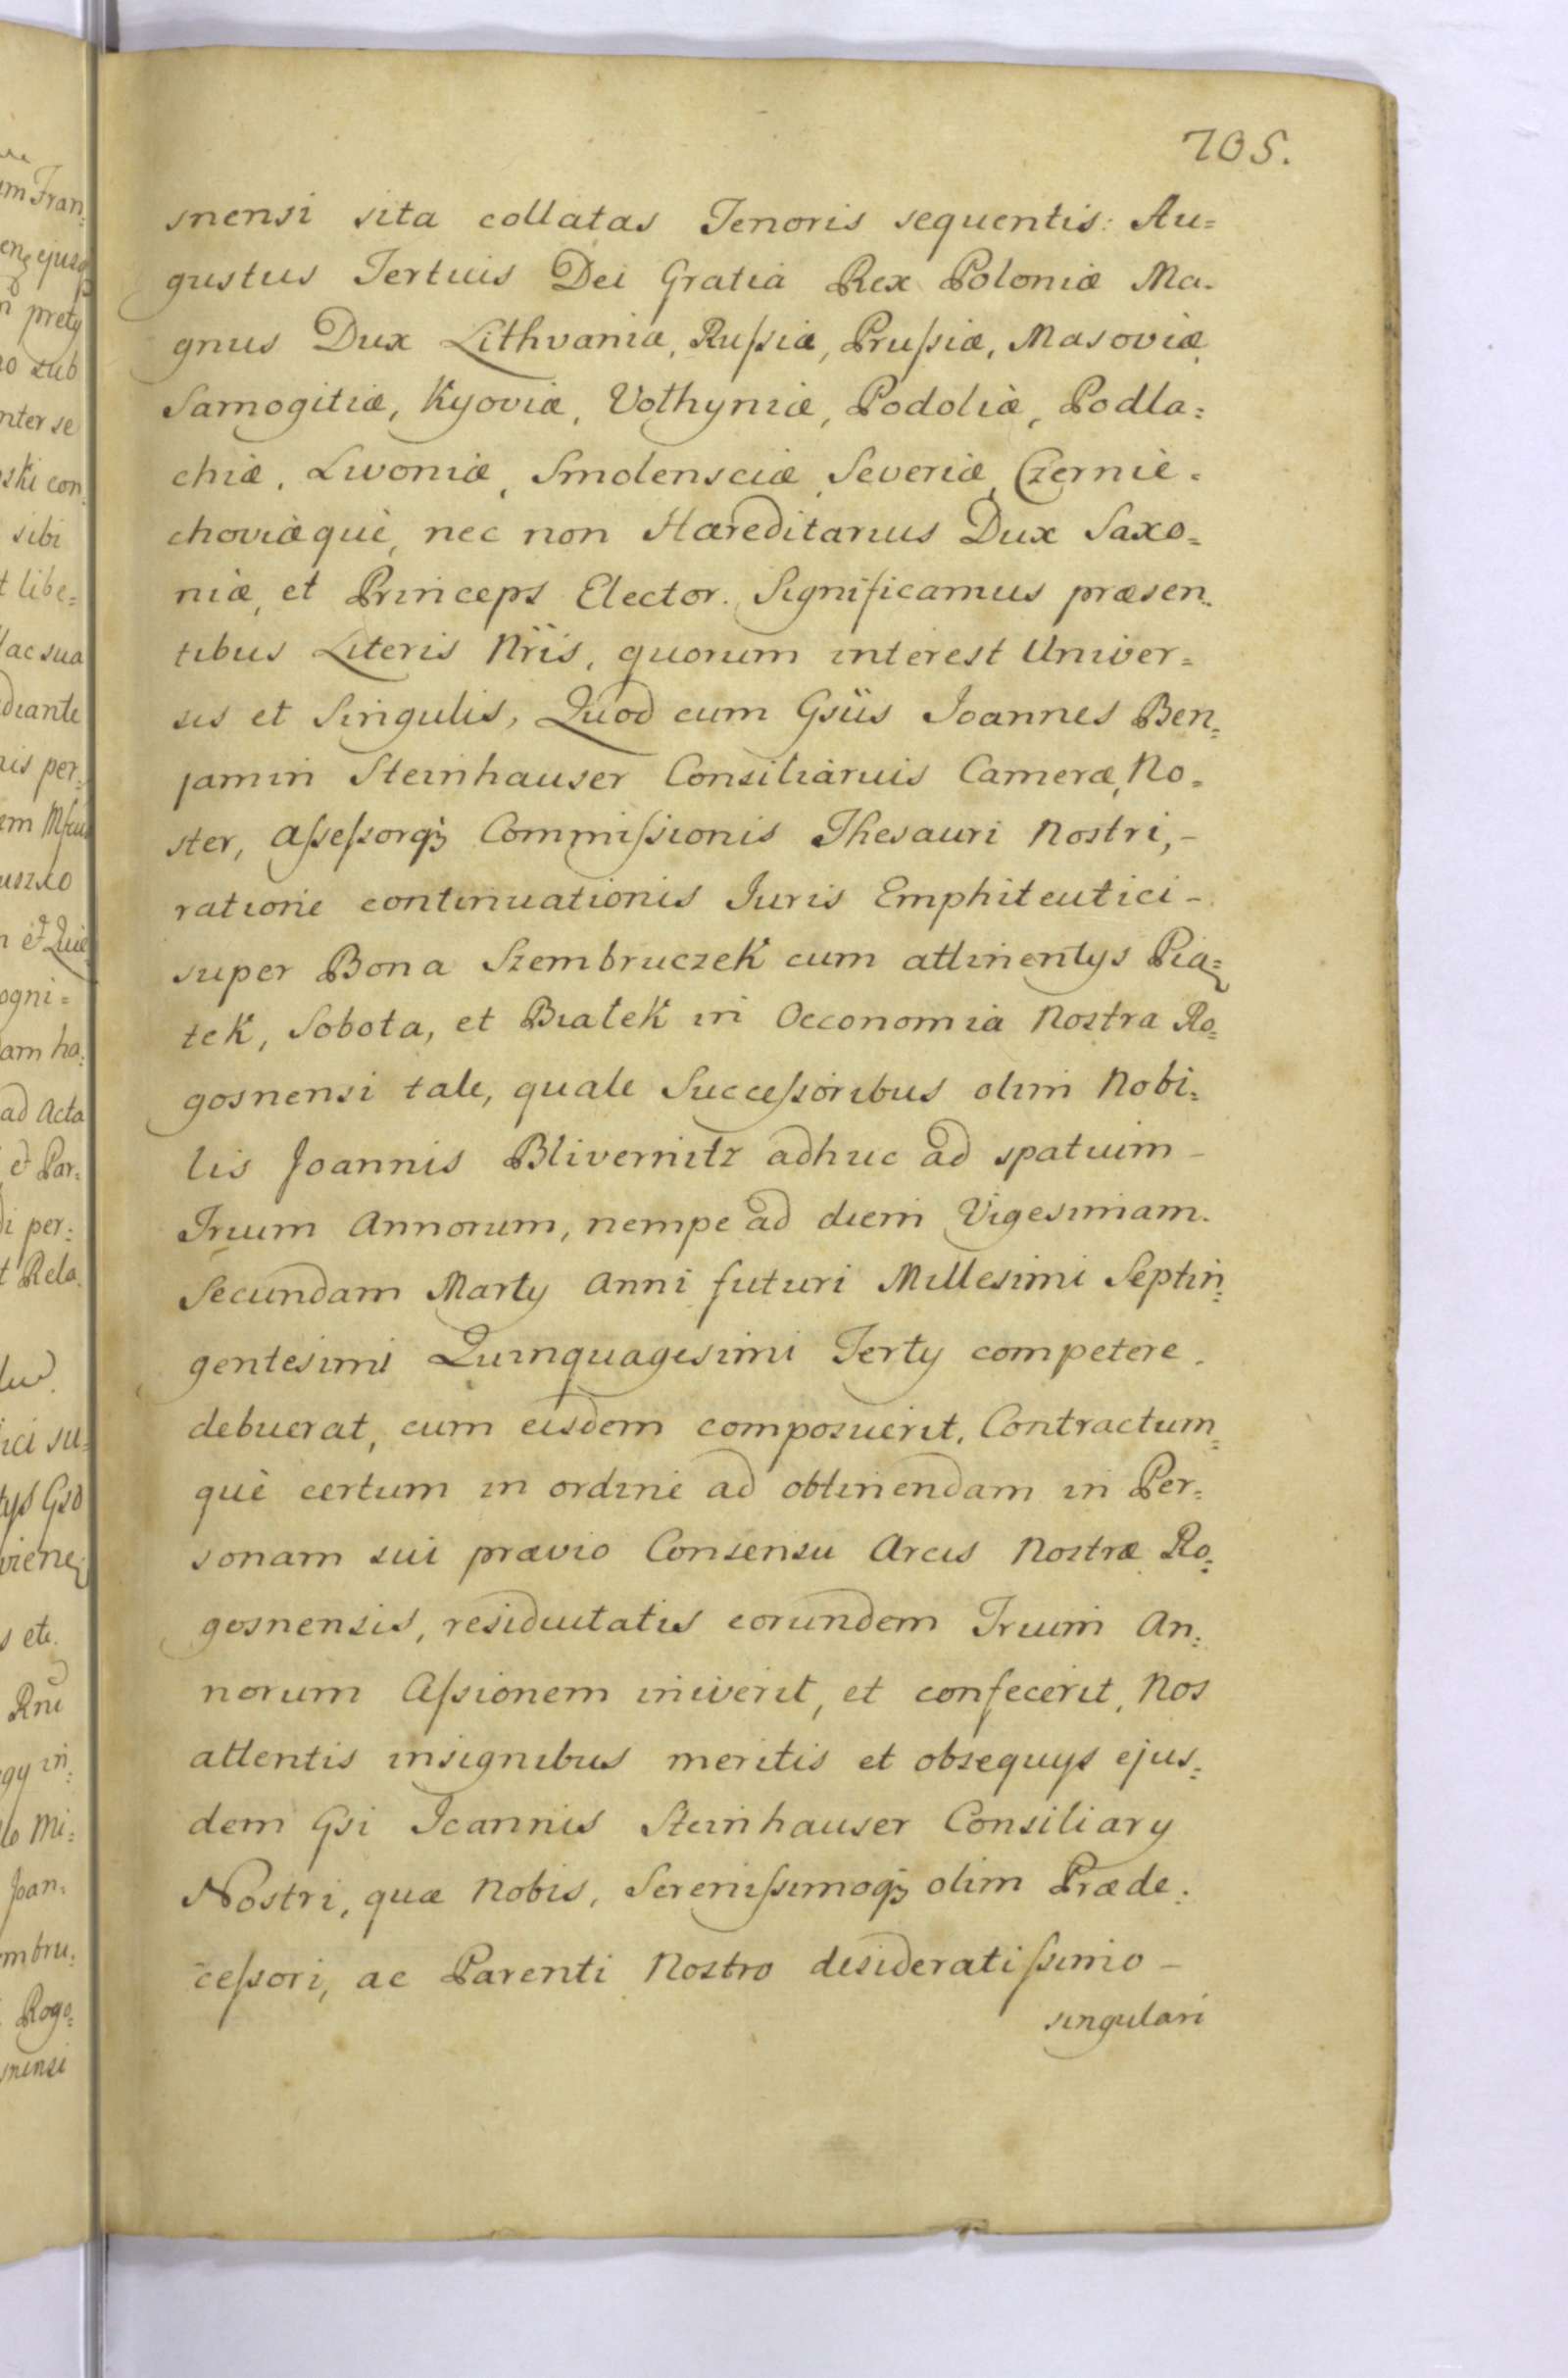 705.
snensi sita collatas Tenoris sequentis: Au=
gustus Tertius Dei Gratia Rex Poloniæ Ma-
gnus Dux Lithvaniæ, Ruſsiæ, Pruſsiæ, Masoviæ,
Samogitiæ, Kyoviæ, Volhyniæ, Podoliæ, Podla=
chiæ, Livoniæ, Smolensciæ, Severiæ, Czernie=
choviæquè, nec non Hæreditarius Dux Saxo=
niæ, et Princeps Elector. Significamus præsen=
tibus Literis Nr̃is, quorum interest Univer=
sis et Singulis, Quod cum Gsũs Joannes Ben=
jamin Steinhauser Consiliarius Cameræ, No=
ster, Aſseſsorq̃ Commiſsionis Thesauri Nostri,-
ratione continuationis Juris Emphiteutici-
super Bona Szembruczek cum attinentys Pią=
tek, Sobota, et Białek in Oeconomia Nostra Ro=
gosnensi tale, quale Succeſsoribus olim Nobi=
lis Joannis Blivernitz adhuc ad spatium-
Trium Annorum, nempe ad diem Vigesimam-
Secundam Marty Anni futuri Millesimi Septin=
gentesimi Quinquagesimi Terty competere.
debuerat, cum eisdem composuerit, Contractum=
què certum in ordine ad obtinendam in Per=
sonam sui prævio Consensu Arcis Nostræ Ro=
gosnensis, residuitatis eorundem Trium An=
norum Aſsionem iniverit, et confecerit, Nos
attentis insignibus meritis et obsequys ejus=
dem Gsi Joannis Steinhauser Consiliary
Nostri, quæ Nobis, Sereniſsimoq̃ olim Præde=
ceſsori, ac Parenti Nostro desideratiſsimo-
singulari